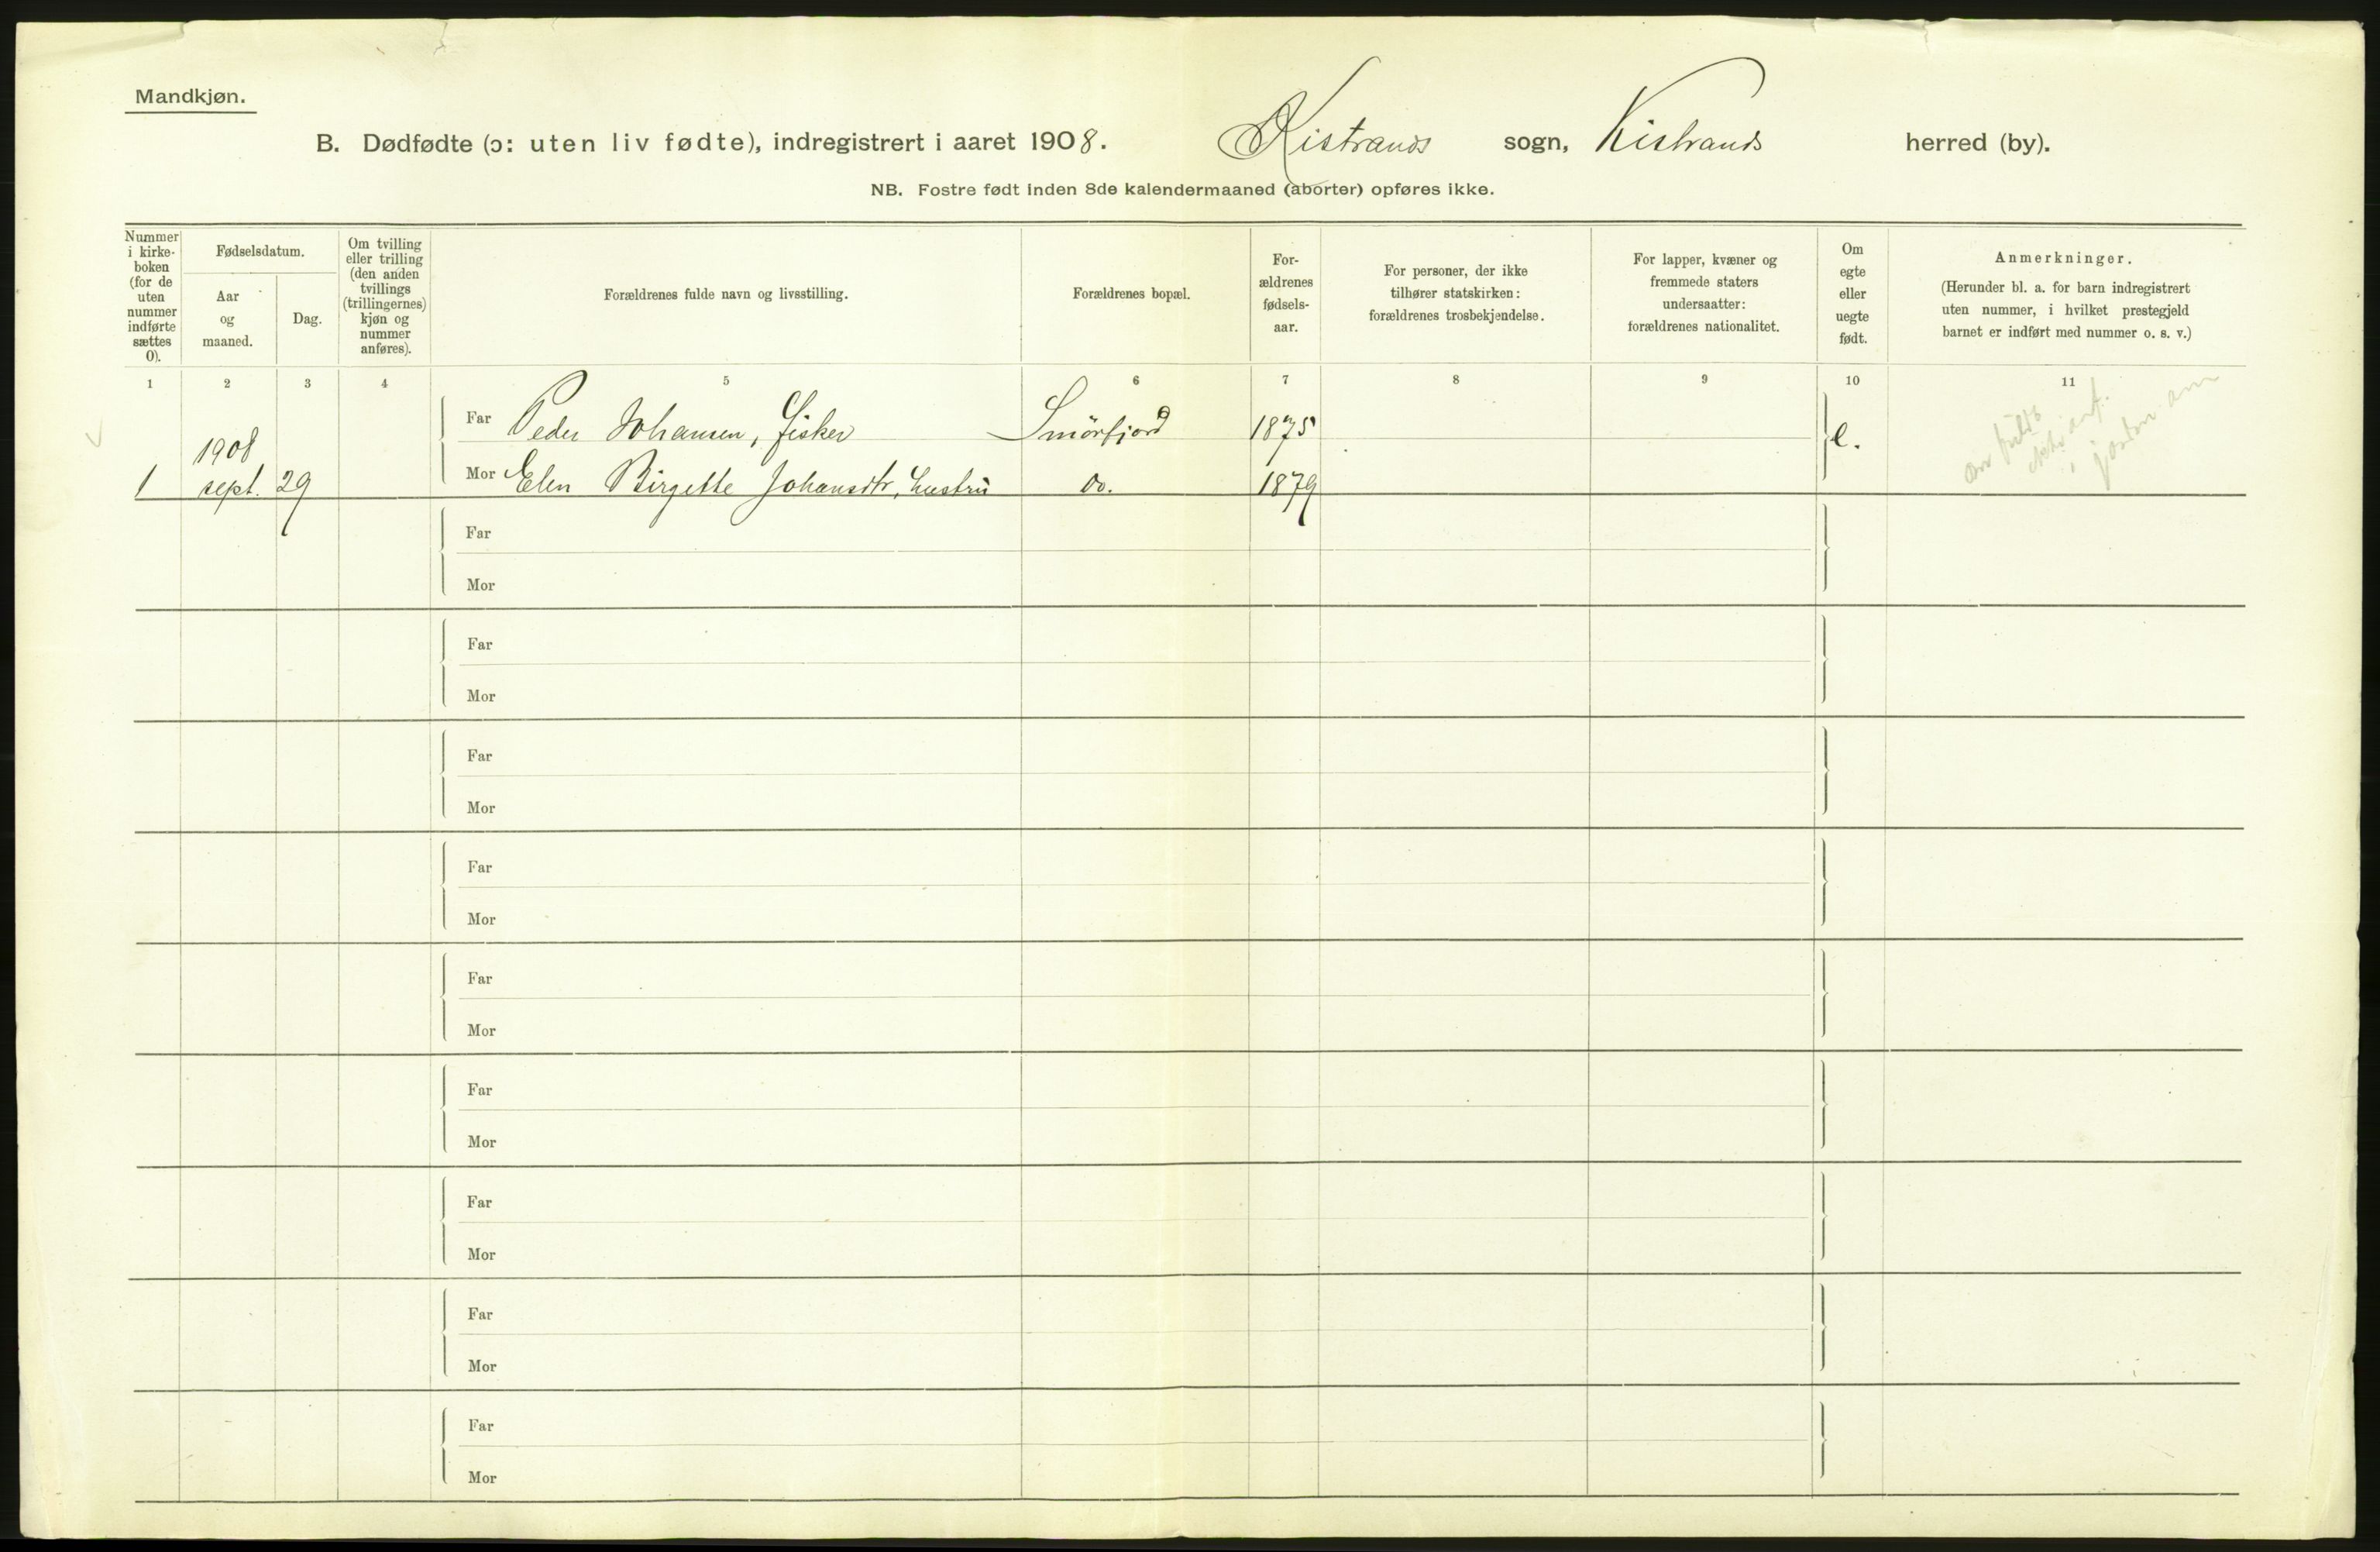 Mandkjøn.
B. Dødfødte (ɔ: uten liv fødte), indregistrert i aaret 1908. Kistrands sogn, Kistrands herred (by).
NB. Fostre født inden 8de kalendermaaned (aborter) opføres ikke.
Nummer
i kirke-
boken
(for de
uten
nummer
indførte
sættes
0).
Fødselsdatum.
Aar
og
maaned.
Dag.
Om tvilling
eller trilling
(den anden
tvillings
(trillingernes)
kjøn og
nummer
anføres).
Forældrenes fulde navn og livsstilling.
Forældrenes bopæl.
For-
ældrenes
fødsels-
aar.
For personer, der ikke
tilhører statskirken:
forældrenes trosbekjendelse.
For lapper, kvæner og
fremmede staters
undersaatter:
forældrenes nationalitet.
Om
egte
eller
uegte
født.
Anmerkninger.
(Herunder bl. a. for barn indregistrert
uten nummer, i hvilket prestegjeld
barnet er indført med nummer o. s. v.)
1 2 3 4 5 6 7 8 9 10 11
Far Peder Johansen, fisker Smörfjord 1875 e.
1908
1 sept. 29 Mor Elen Birgette Johansdtr, hustru do. 1879
Far
Mor
Far
Mor
Far
Mor
Far
Mor
Far
Mor
Far
Mor
Far
Mor
Far
Mor
Far
Mor